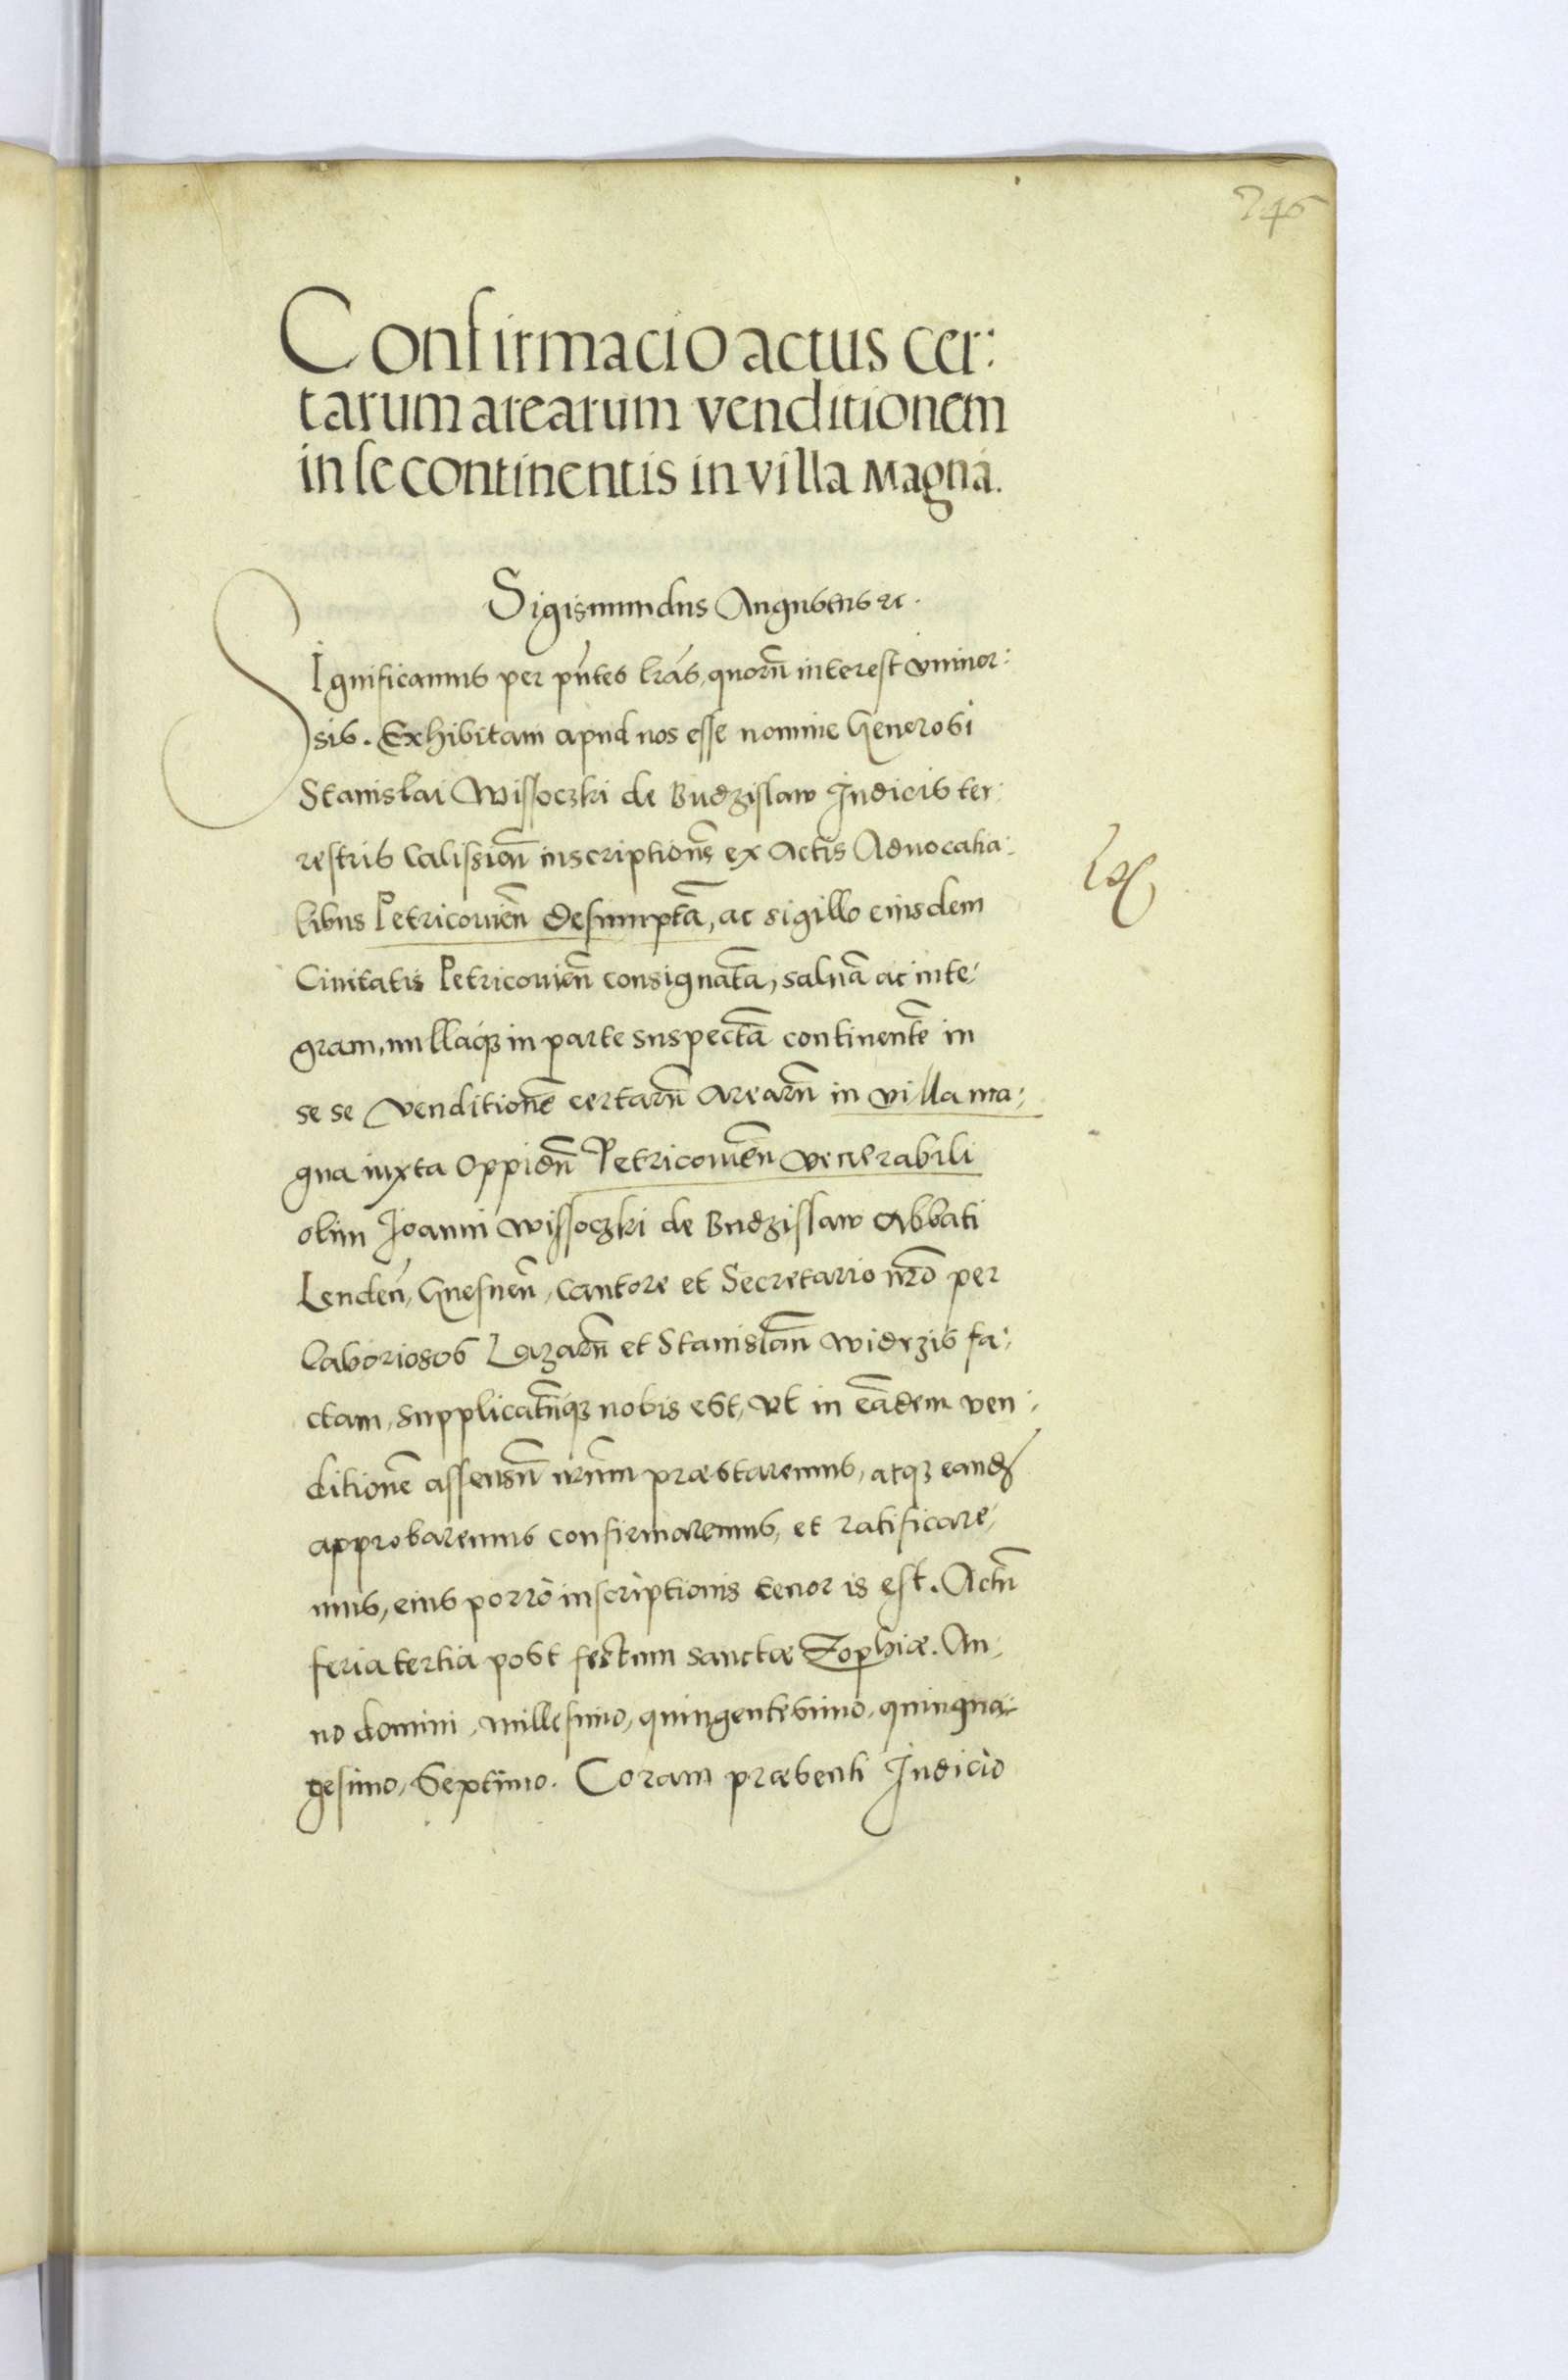 246
Confirmacio actus cer:
tarum arearum venditionem
in se continentis in villa Magna.
Sigismundus Augustus etc.
Significamus per pn̄tes lrās, quorū interest vniuer:
sis. Exhibitam apud nos esse nomine Generosi
Stanislai Wissoczki de Budzislaw Judicis ter:
restris Calissien̄ inscriptionē ex actis Aduocatia:
libus Petricouien̄ desumptā, ac sigillo eiusdem
Ciuitatis Petricouien̄ consignatā, saluā ac inte:
gram, nullaq; in parte suspectā continentē in
se se venditionē certarū arearū in villa ma:
gna iuxta oppidū Petricouien̄ venerabili
olim Joanni Wissoczki de Budzislaw Abbati
Lenden̄, Gnesnen̄, Cantore et Secretario nrō per
laboriosos Lazarū et Stanislaū Widrzis fa:
ctam, supplicatūq; nobis est, vt in eādem ven:
ditionē assensū nrūm præstaremus, atq; eand
approbaremus confirmaremus, et ratificare:
mus, eius porrò inscriptionis tenor is est. Actū
feria tertia post festum sanctæ Zophiæ. An:
no domini, millesimo, quingentesimo, quinqua:
gesimo, Septimo. Coram præsenti Judicio